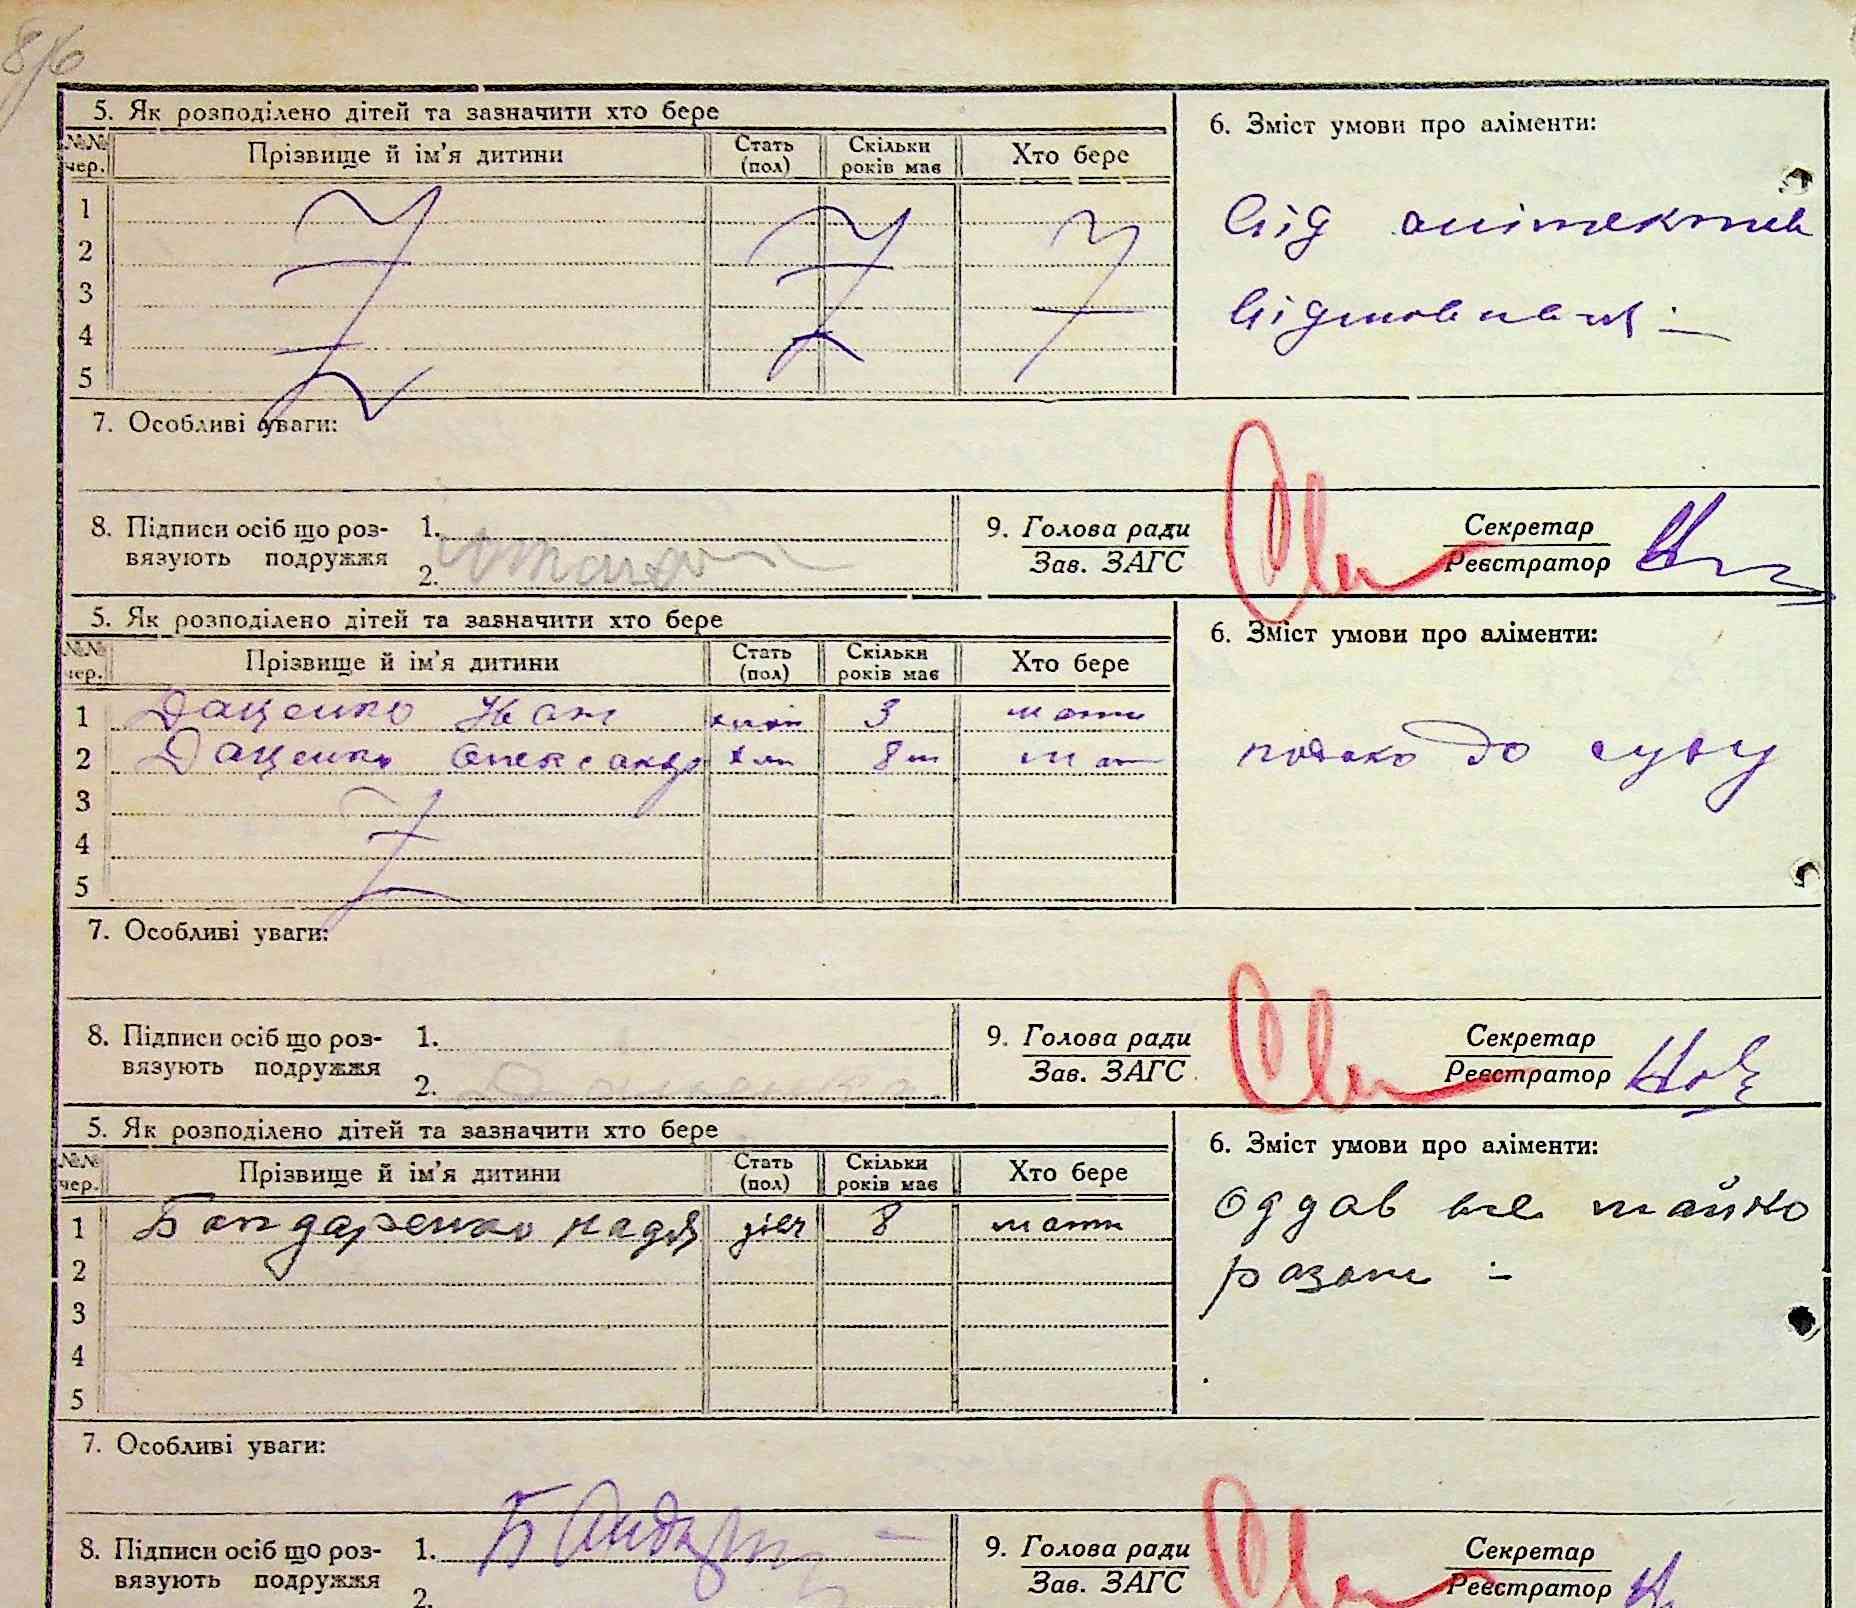 8/6
5. Як розподілено дітей та зазначити хто бере
6. Зміст умови про аліменти:
№№ чер. Прізвище й ім'я дитини Стать (пол) Скільки років має Хто бере
1
2
3
4
5
Від аліментів
відмовилась
7. Особливі уваги:
8. Підписи осіб що роз-
вязують подружжя
1.
2.
9. Голова ради
Зав. ЗАГС
Секретар
Реєстратор
5. Як розподілено дітей та зазначити хто бере
6. Зміст умови про аліменти:
№№ чер. Прізвище й ім'я дитини Стать (пол) Скільки років має Хто бере
1 Даценко Іван 3 мати
2 Даценко Олександр хлп 8 м мат
3
4
5
до суду
7. Особливі уваги:
8. Підписи осіб що роз-
вязують подружжя
1.
2.
9. Голова ради
Зав. ЗАГС
Секретар
Реєстратор
5. Як розподілено дітей та зазначити хто бере
6. Зміст умови про аліменти:
№№ чер. Прізвище й ім'я дитини Стать (пол) Скільки років має Хто бере
1 Бондаренко Надя дівч 8 мати
2
3
4
5
Оддав все майно
разом
7. Особливі уваги:
8. Підписи осіб що роз-
вязують подружжя
1.
2.
9. Голова ради
Зав. ЗАГС
Секретар
Реєстратор